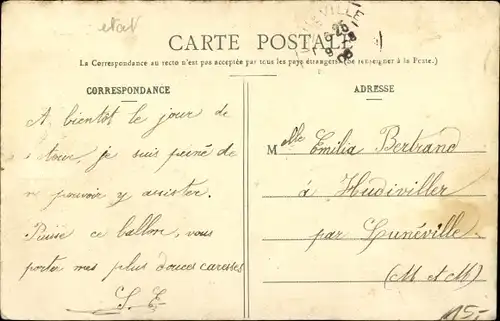 etat
VILLE
CARTE POSTALE
La Correspondance au recto n'est pas acceptée par tous les pays étrangers (Se renseigner à la Poste.)
CORRESPONDANCE
A bientôt le jour de
tour, je suis peiné de
ne pouvoir y assister.
Puisse ce ballon, vous
porter mes plus douces caresses
S. E.
ADRESSE
Melle Emilia Bertrand
à Hudiviller
par Lunéville
(M et M)